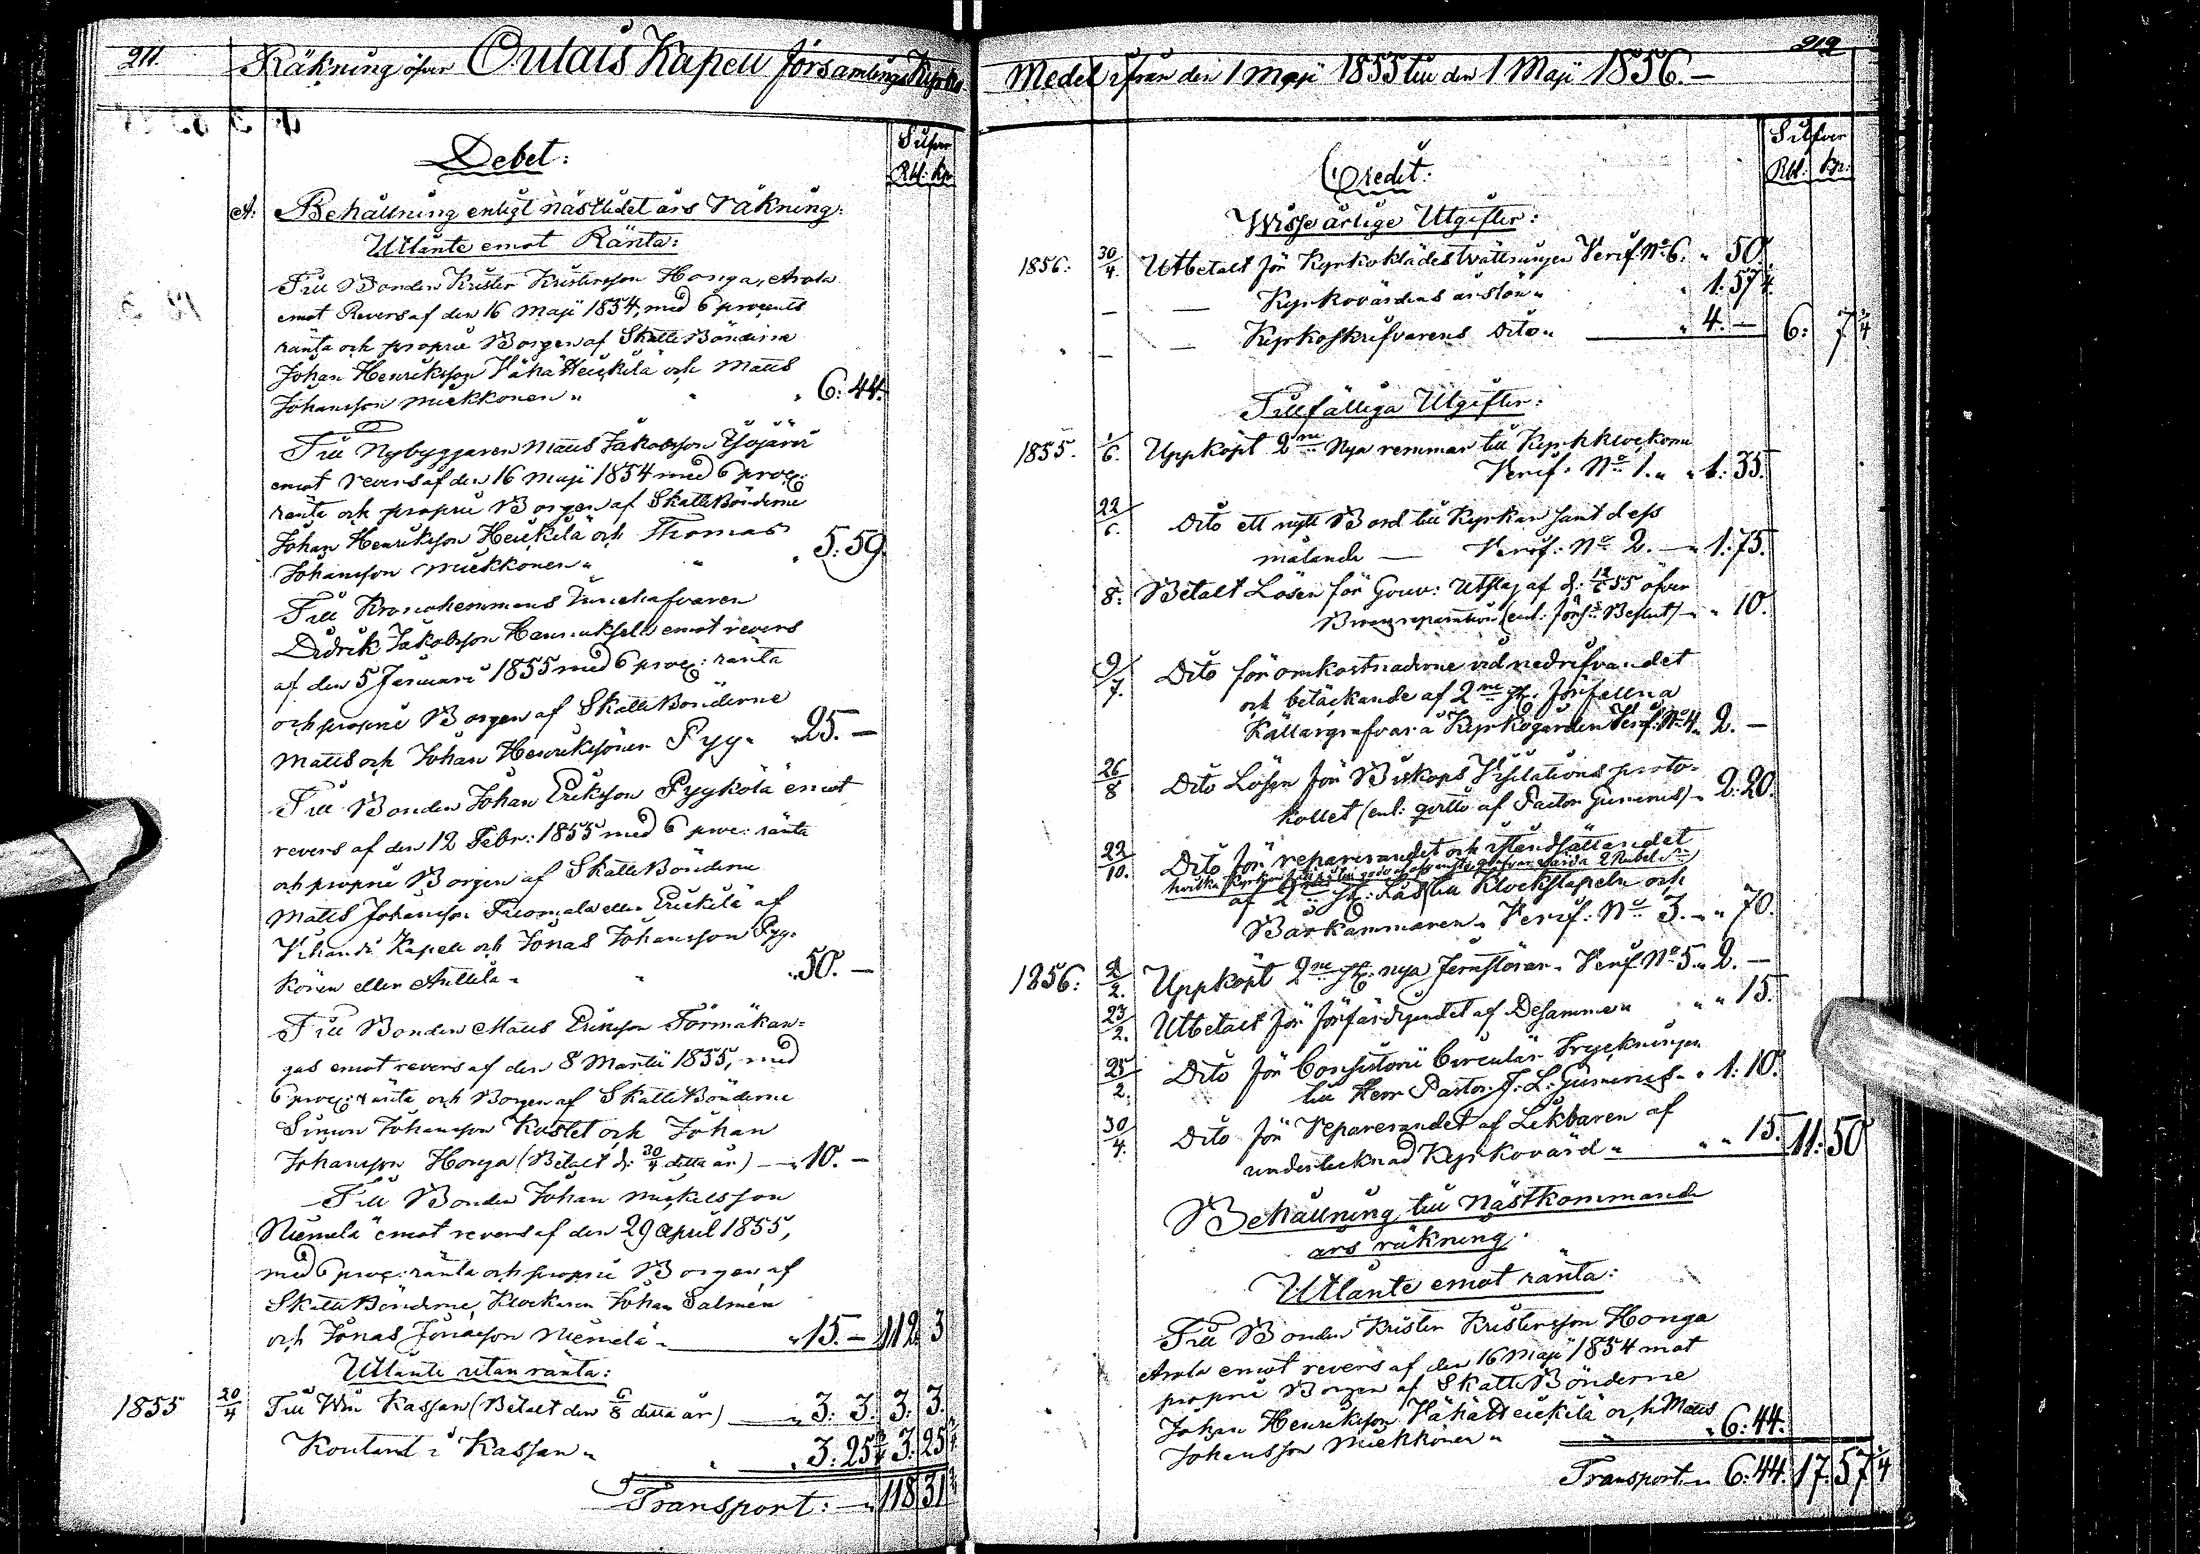 211.
Räkning öfver Oulais Kapell församlings Kyrko
Debet:
Silfver
Rbl. Kp
A: Behållning enligt nästlidet års räkning:
Utlånte emot Ränta:
Till Bonden Krister Kristersson Honga, Arola
emot Revers af den 16 Maji 1854, med 6 procents
ränta och proprie Borgen af SkatteBönderne
Johan Henriksson VähäHeickilä och Matts
Johansson Mickkonen " " " 6: 44.
Till Nybyggaren Matts Jakobsson Isojärvi
emot revers af den 16 Maji 1854 med 6 proc:
ränta och proprie Borgen af SkatteBönderne
Johan Henriksson Heickilä och Thomas
Johansson Mickkonen " " " 5: 59.
Till Kronohemmans Innehafvaren
Didrik Jakobsson Hannuksela emot revers
af den 5 Januari 1855 med 6 proc: ränta
och proprie Borgen af SkatteBönderne
Matts och Johan Henrikssöner Pyy " " 25. —
Till Bonden Johan Eriksson Pyykölä emot
revers af den 12 Febr: 1855 med 6 proc: ränta
och proprie Borgen af SkatteBönderne
Matts Johansson eller Erickilä af
Vihandi Kapell och Jonas Johansson Pyy-
könen eller Anttila " " " 50. —
Till Bonden Matts Ericsson Törmäkan-
gas emot revers af den 8 Martii 1855, med
6 proc: ränta och Borgen af SkatteBönderne
Simon Johansson Kastet och Johan
Johansson Honga (Betalt d: 30/4 detta år) — " 10. —
Till Bonden Johan Mickelsson
Niemelä emot revers af den 29 April 1855,
med 6 proc: ränta och proprie Borgen af
SkatteBönderne, Klockaren Johan Salmén
och Jonas Jonasson Niemelä " " 15. — 112. 3
Utlånte utan ränta:
1855 20/4 Till Win Kassan (Betalt den 6/8 detta år) — " 3: 3. 3: 3.
Kontant i Kassan " " " 3: 25 3: 25
Transport: — " 118 31
212
Medel ifrån den 1 Maji 1855 till den 1 Maji 1856. —
Silfver
Rbl: Kp:
Credit:
Wisse årlige Utgifter:
1856. 30/4. Utbetalt för Kyrkoklädestvättningen Verif: No 6. " 50.
— — Kyrkovärdens årslön " " 1: 57
" — — Kyrkoskrifvarens Dito " " 4. — 6: 7
Tillfälliga Utgifter:
1855. 1/6. Uppköpt 2ne Nya remmar till Kyrkklockorne
Verif: No 1. " " 1: 35.
22/6. Dito ett nytt Bord till Kyrkan samt dess
målande — Verif: No 2. — " 1: 75.
8: Betalt Lösen för Gouv: Utslag af d: 55 öfver
(enl: Förs: Beslut) — " 10.
9/7. Dito för omkostnaderne vid nedrifvandet
och betäckande af 2ne st: förfallna
Källargrafvar å Kyrkogården Verif: No 4. 2. —
26/8 Dito Lösen för Biskops Visitations proto-
kollet (enl: qvitto af Pastor Gummerus) " 2: 20.
22/10. Dito för reparerandet och iståndsättandet
af 2ne st: Lås till Klockstapeln och
Bårkammaren " Verif: No 3. — " 70.
1856: 2/2. Uppköpt 2ne st: nya Jernstörar " Verif: No 5. " 2. —
23/2. Utbetalt för förfärdigandet af Desamme " " " 15.
25/2: Dito för Consistorii Circulär Tryckningen
till Herr Pastor J: L: Gummerus " " 1: 10.
30/4. Dito för Reparerandet af Likbaren af
undertecknad Kyrkovärd " " " 15. 11: 50
Behållning till Nästkommande
års räkning.
Utlånte emot ränta:
Till Bonden Krister Kristersson Honga
Arola emot revers af den 16 Maji 1854 mot
proprie Borgen af SkatteBönderne
Johan Henriksson VähäHeickilä och Matts
Johansson Mickkonen " " " 6: 44.
Transport " 6: 44. 17: 57